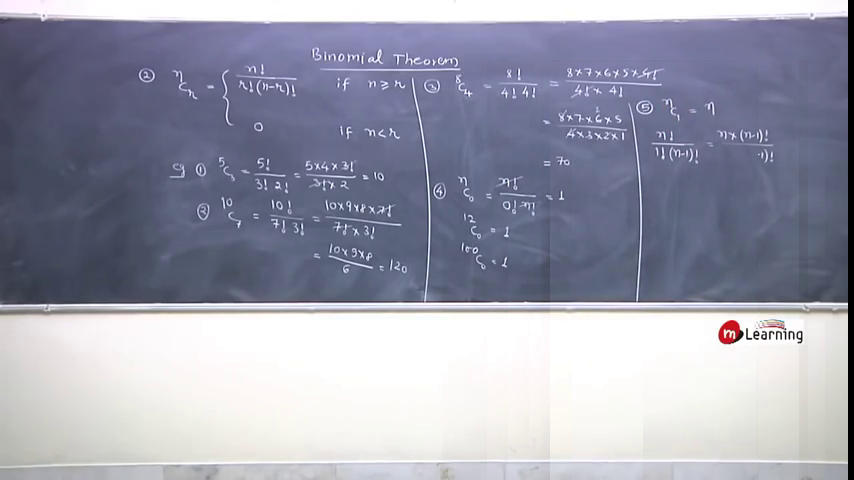 Binomial Theorem
② ⁿCᵣ = { n! / r!(n-r)! if n ≥ r
0 if n < r
eg ① ⁵C₃ = 5! / 3! 2! = 5×4×3! / 3!×2 = 10
② ¹⁰C₇ = 10! / 7! 3! = 10×9×8×7! / 7!×3!
= 10×9×8 / 6 = 120
③ ⁸C₄ = 8! / 4! 4! = 8×7×6×5×4! / 4!×4!
= 8×7×6×5 / 4×3×2×1
= 70
④ ⁿC₀ = n! / 0! n! = 1
¹²C₀ = 1
¹⁰⁰C₀ = 1
⑤ ⁿC₁ = n
n! / 1!(n-1)! = n×(n-1)! / -1)!
m Learning